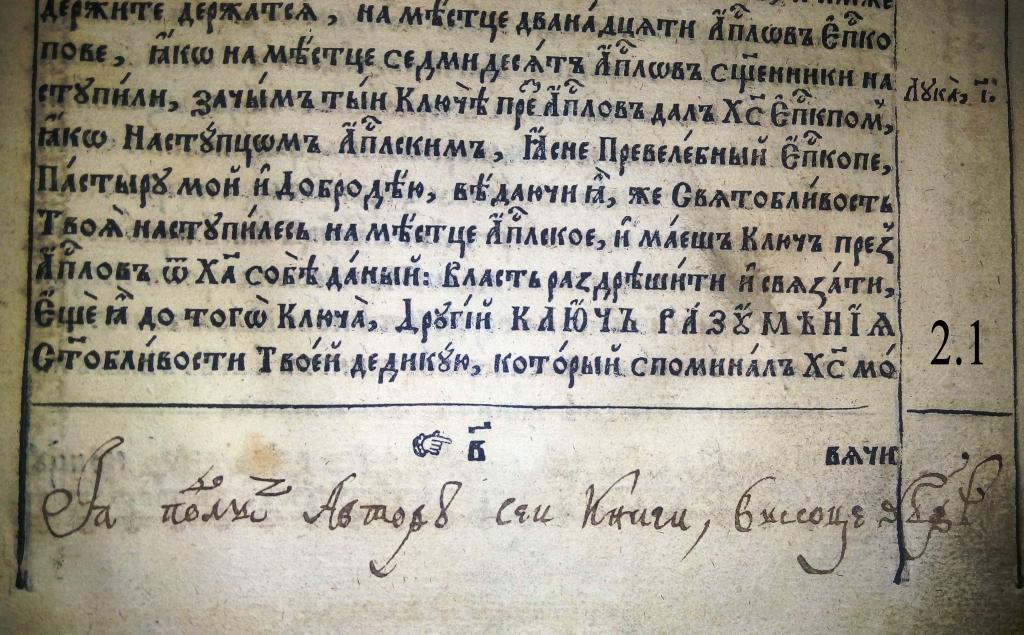 держите держатсѧ, на мѣ́стце двана́дцѧти А҆пⷭ҇лѡвъ Е҆пⷭ҇ко
пове, ꙗ҆́кѡ на мѣ́стце седмидесѧ́тъ А҆пⷭ҇лѡвъ сщ҃енники на
ступи́ли, зачы́мъ ты́и Ключѣ̀ пре́ⷥ А҆пⷭ҇ловъ далъ Хс҃ Е҆пⷭ҇кпо́м,
Лука̀, і҃.
ꙗ҆́кѡ Насту́пцѡмъ А҆пⷭ҇лскимъ, Ꙗ҆́сне Превеле́бный Е҆пⷭ҇копе,
Па́стыру мой и҆ Добродѣ́ю, вѣ́даючи ѧ҆̀, же Свѧтобли́вость
Твоѧ̀ наступи́лесь на мѣ́стце А҆пⷭ҇лское, и҆ ма́ешъ Ключъ през
А҆пⷭ҇ловъ ѿ Ха҃ собѣ̀ да́ный: Власть раздрѣши́ти и҆ свѧза́ти,
Е҆щѐ ѧ҆̀ до тогѡ̀ Ключа̀, Другі́й КЛЮ́ЧЪ РАЗУМѢ́НІЯ
Ст҃обли́вости Твое́й дедику́ю, кото́рый споминалъ Хс҃ мо́
2.1
☞ в҃
вѧчи
За Авторъ сеи Книги, висоце